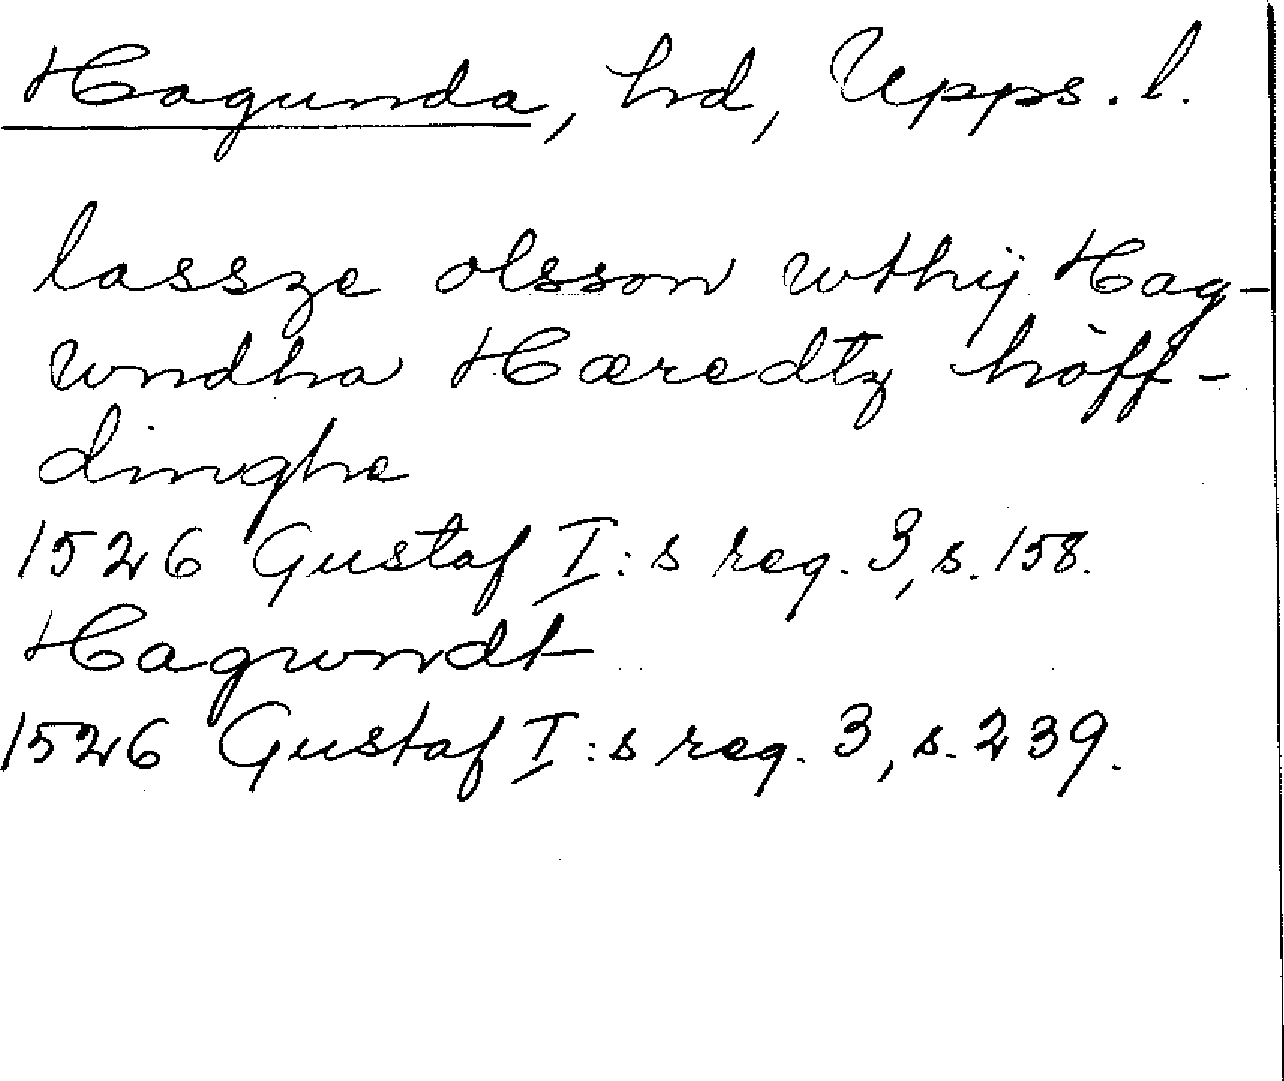 Hagunda, hd, Upps. l.
lassze olsson wthij Hag-
wndha Hæredtz höff-
dinghe
1526 Gustaf I:s reg. 3, s. 158.
Hagwndt
1526 Gustaf I:s reg. 3, s. 239.